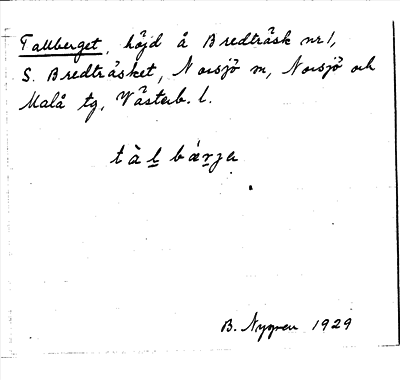 Tallberget, höjd å Bredträsk nr 1,
S. Bredträsket, Norsjö sn, Norsjö och
Malå tg, Västerb. l.
tàl̲ bær̲ɟa
B. Nygren 1929